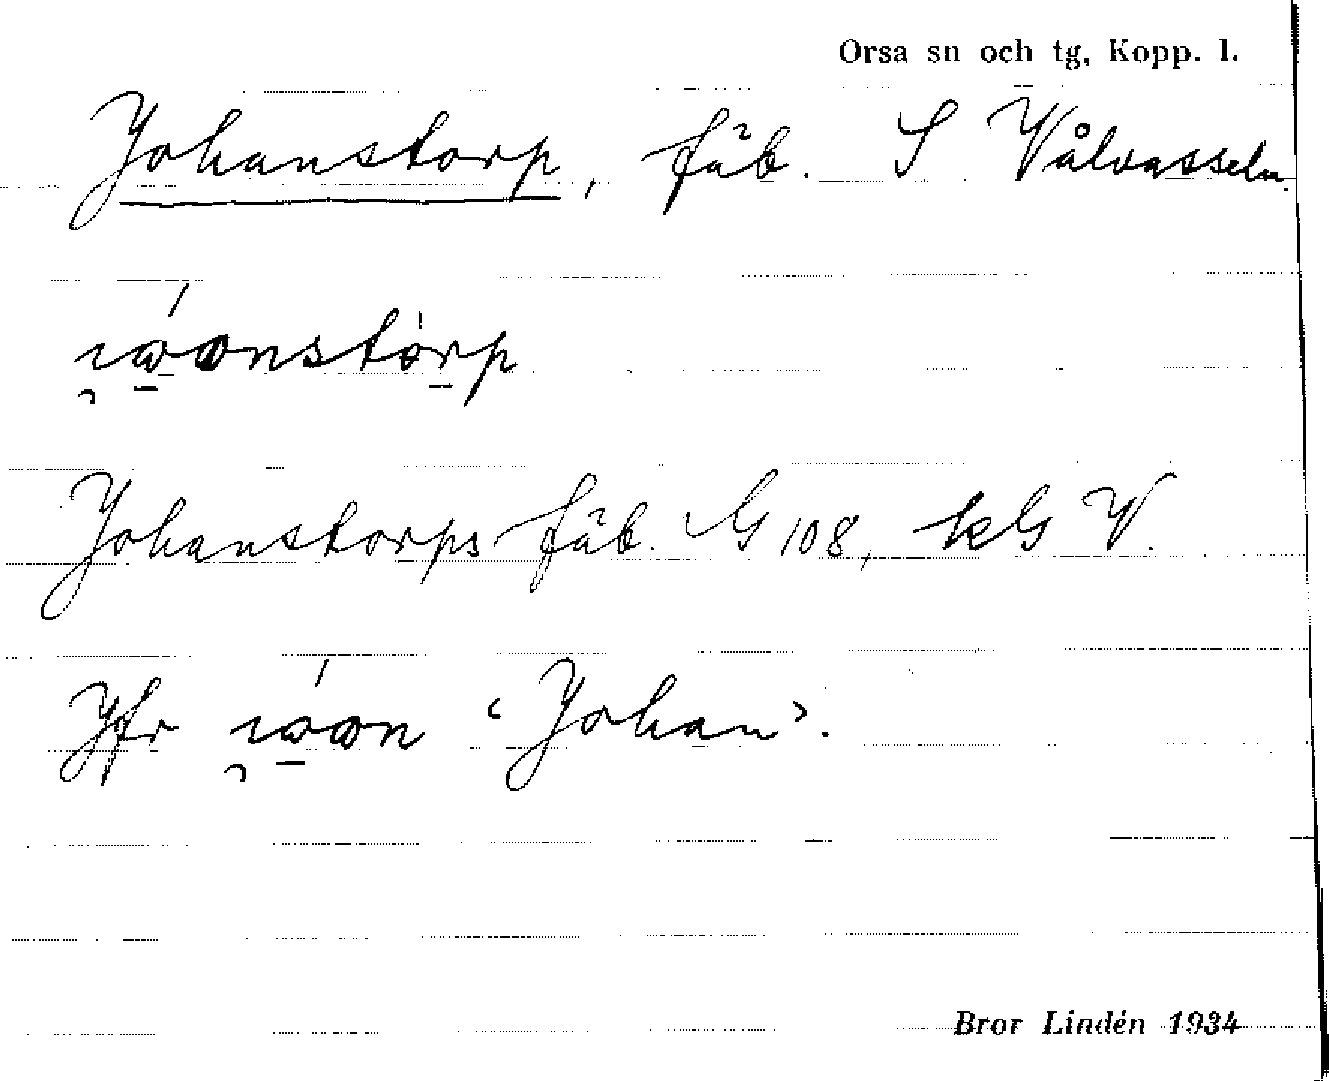 Orsa sn och tg, Kopp. l.
Johanstorp, fäb. S Vålvasseln.
Johanstorps fäb. G 108, kG V.
Jfr "Johan".
Bror Lindén 1934